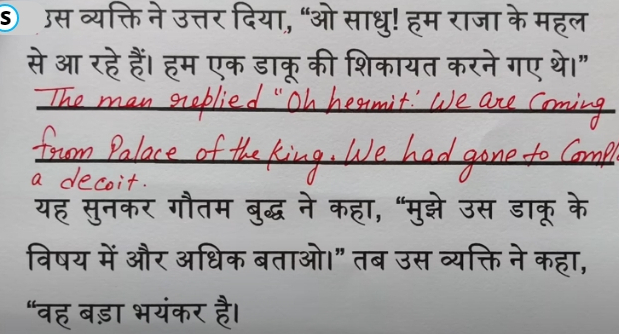 S उस व्यक्ति ने उत्तर दिया, “ओ साधु! हम राजा के महल
से आ रहे हैं। हम एक डाकू की शिकायत करने गए थे।”
The man replied "Oh hermit! We are Coming
from Palace of the king. We had gone to Compl
a decoit.
यह सुनकर गौतम बुद्ध ने कहा, “मुझे उस डाकू के
विषय में और अधिक बताओ।” तब उस व्यक्ति ने कहा,
“वह बड़ा भयंकर है।